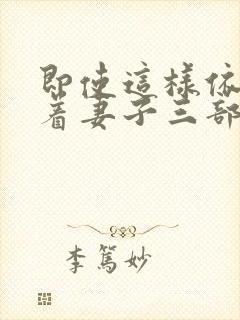 即使這樣依
著妻子三部
李篤妙